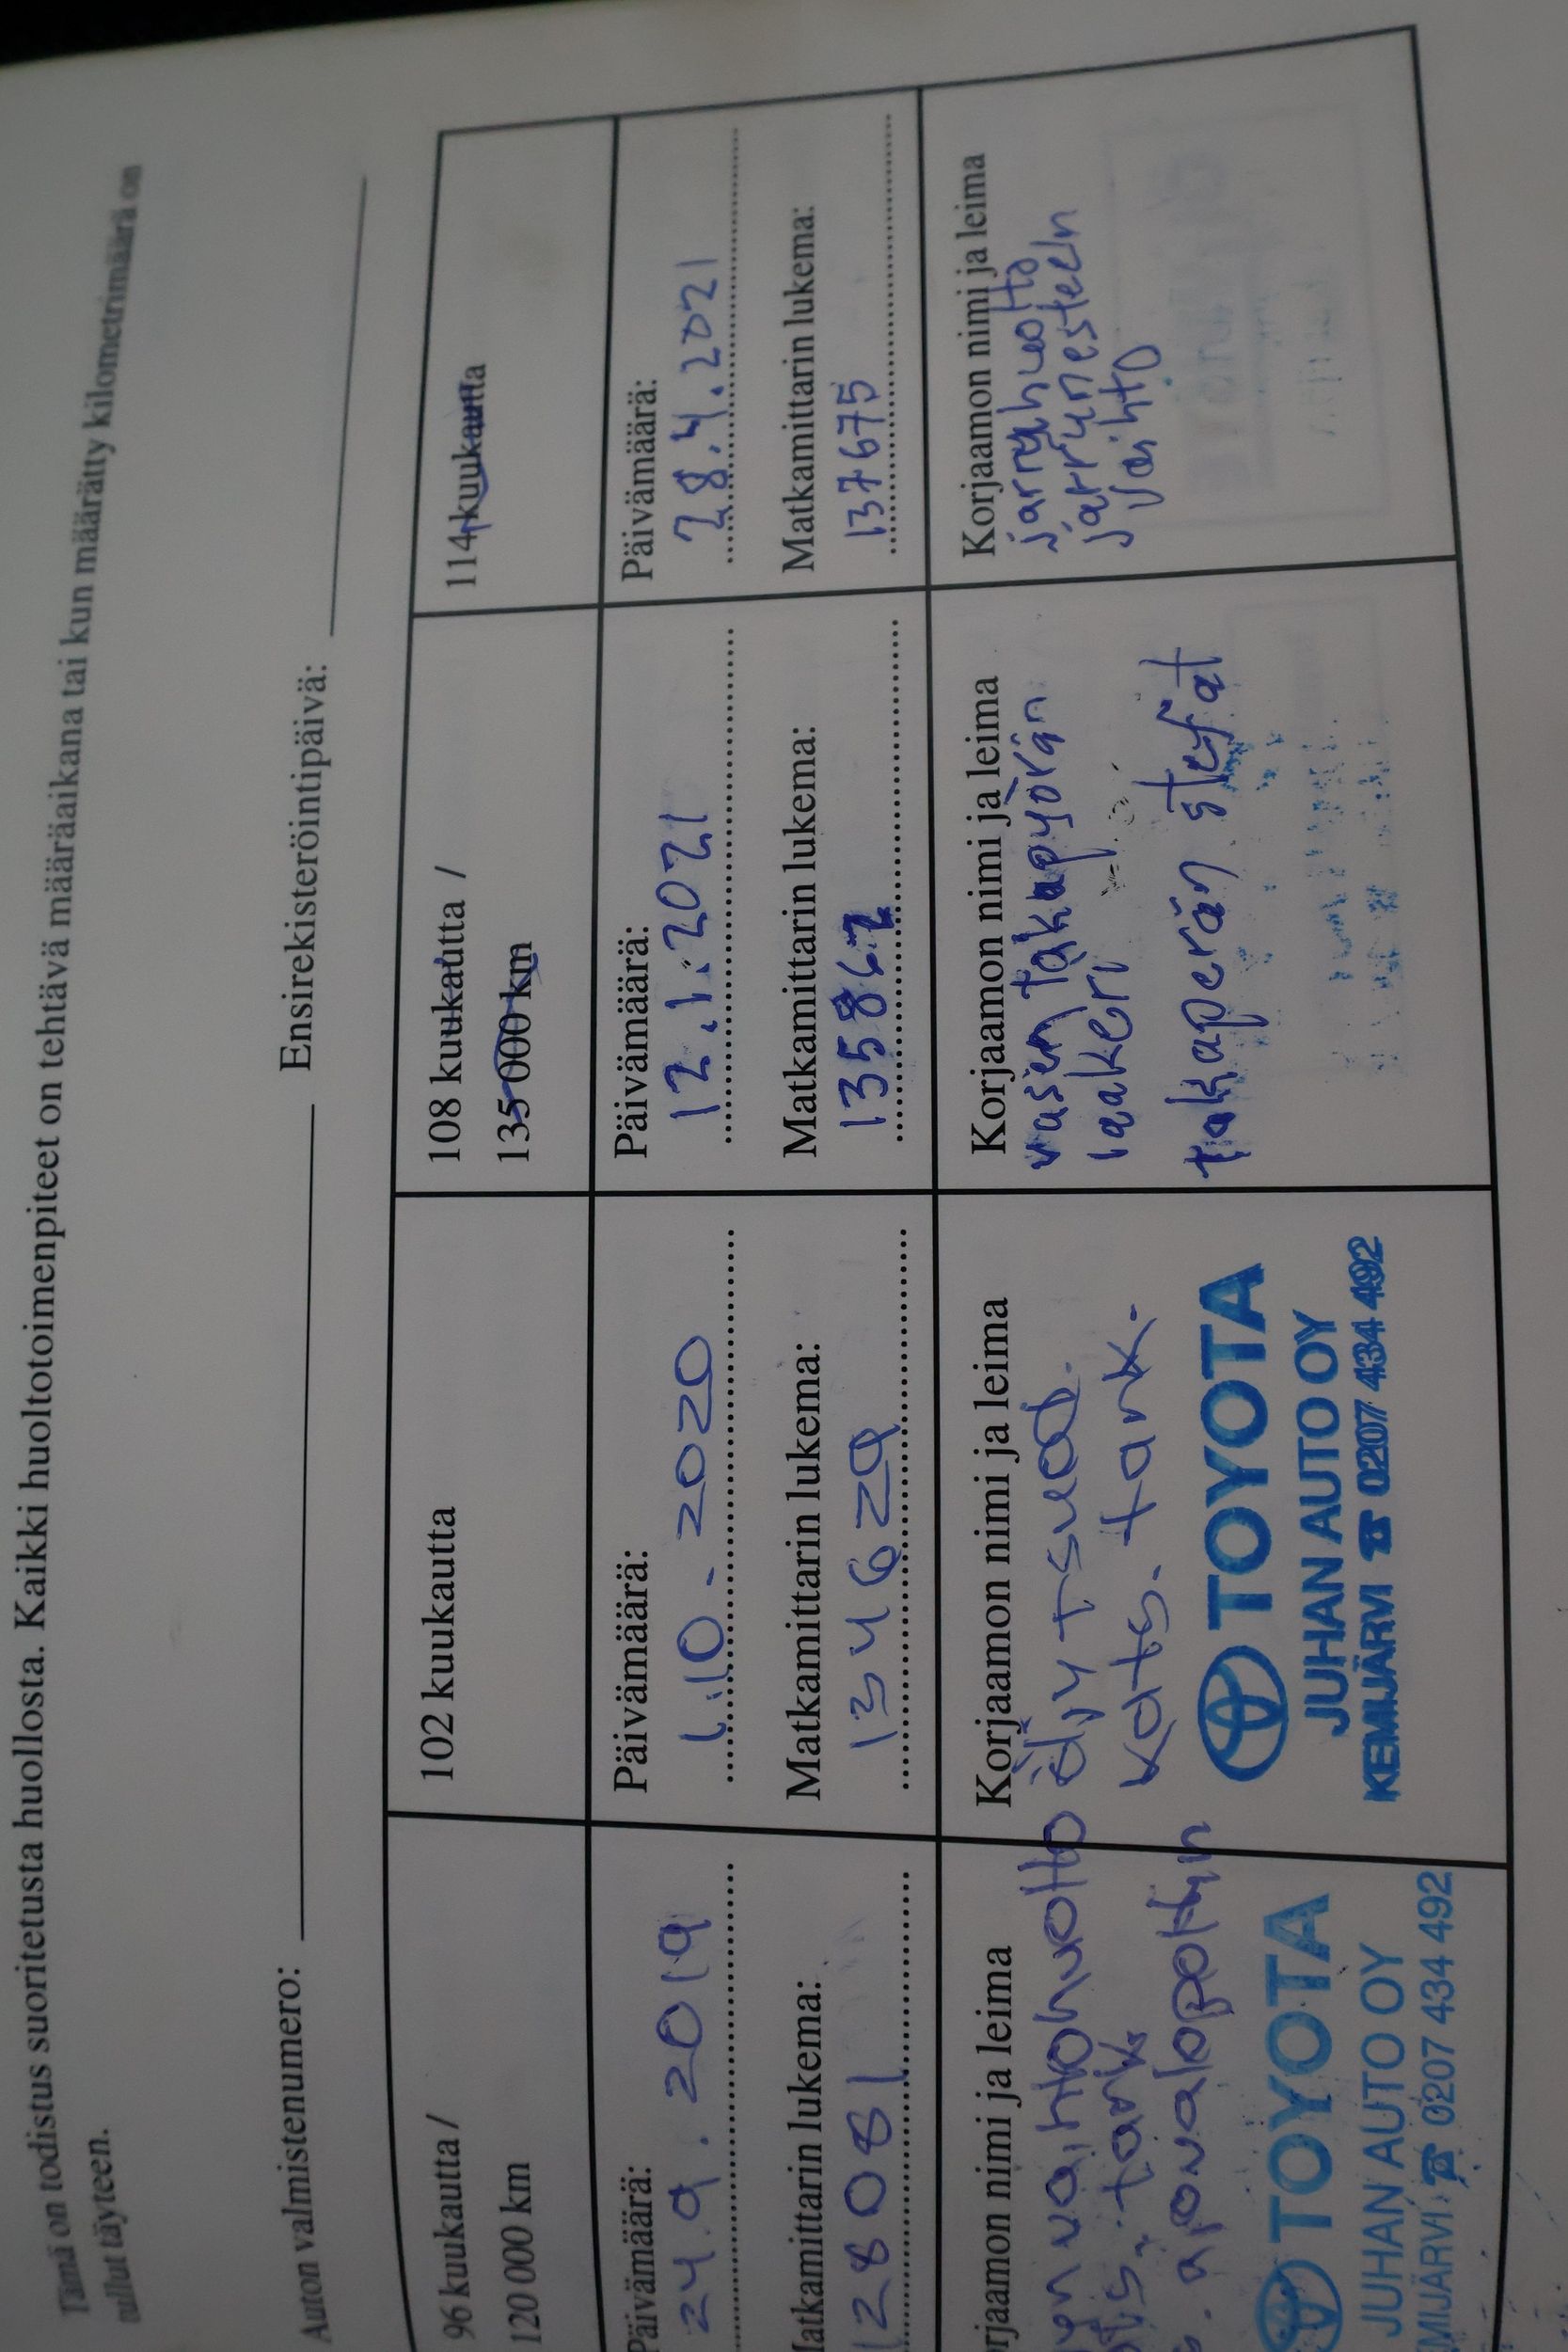 Tämä on todistus suoritetusta huollosta. Kaikki huoltotoimenpiteet on tehtävä määräaikana tai kun määrätty kilometrimäärä on
tullut täyteen.
Auton valmistenumero: Ensirekisteröintipäivä:
96 kuukautta /
120 000 km
Päivämäärä:
24.9.2019
Matkamittarin lukema:
128081
Korjaamon nimi ja leima
vaihtohuolto
tark.
ajovalopoltin
TOYOTA
JUHAN AUTO OY
MIJÄRVI ☎ 0207 434 492
102 kuukautta
Päivämäärä:
1.10.2020
Matkamittarin lukema:
134629
Korjaamon nimi ja leima
öljy + suod.
kats. tark.
TOYOTA
JUHAN AUTO OY
KEMIJÄRVI ☎ 0207 434 492
108 kuukautta /
135 000 km
Päivämäärä:
12.1.2021
Matkamittarin lukema:
135862
Korjaamon nimi ja leima
vasen takapyörän
laakeri
takaperän stefat
114 kuukautta
Päivämäärä:
28.4.2021
Matkamittarin lukema:
137675
Korjaamon nimi ja leima
jarruhuolto
jarrunesteen
vaihto